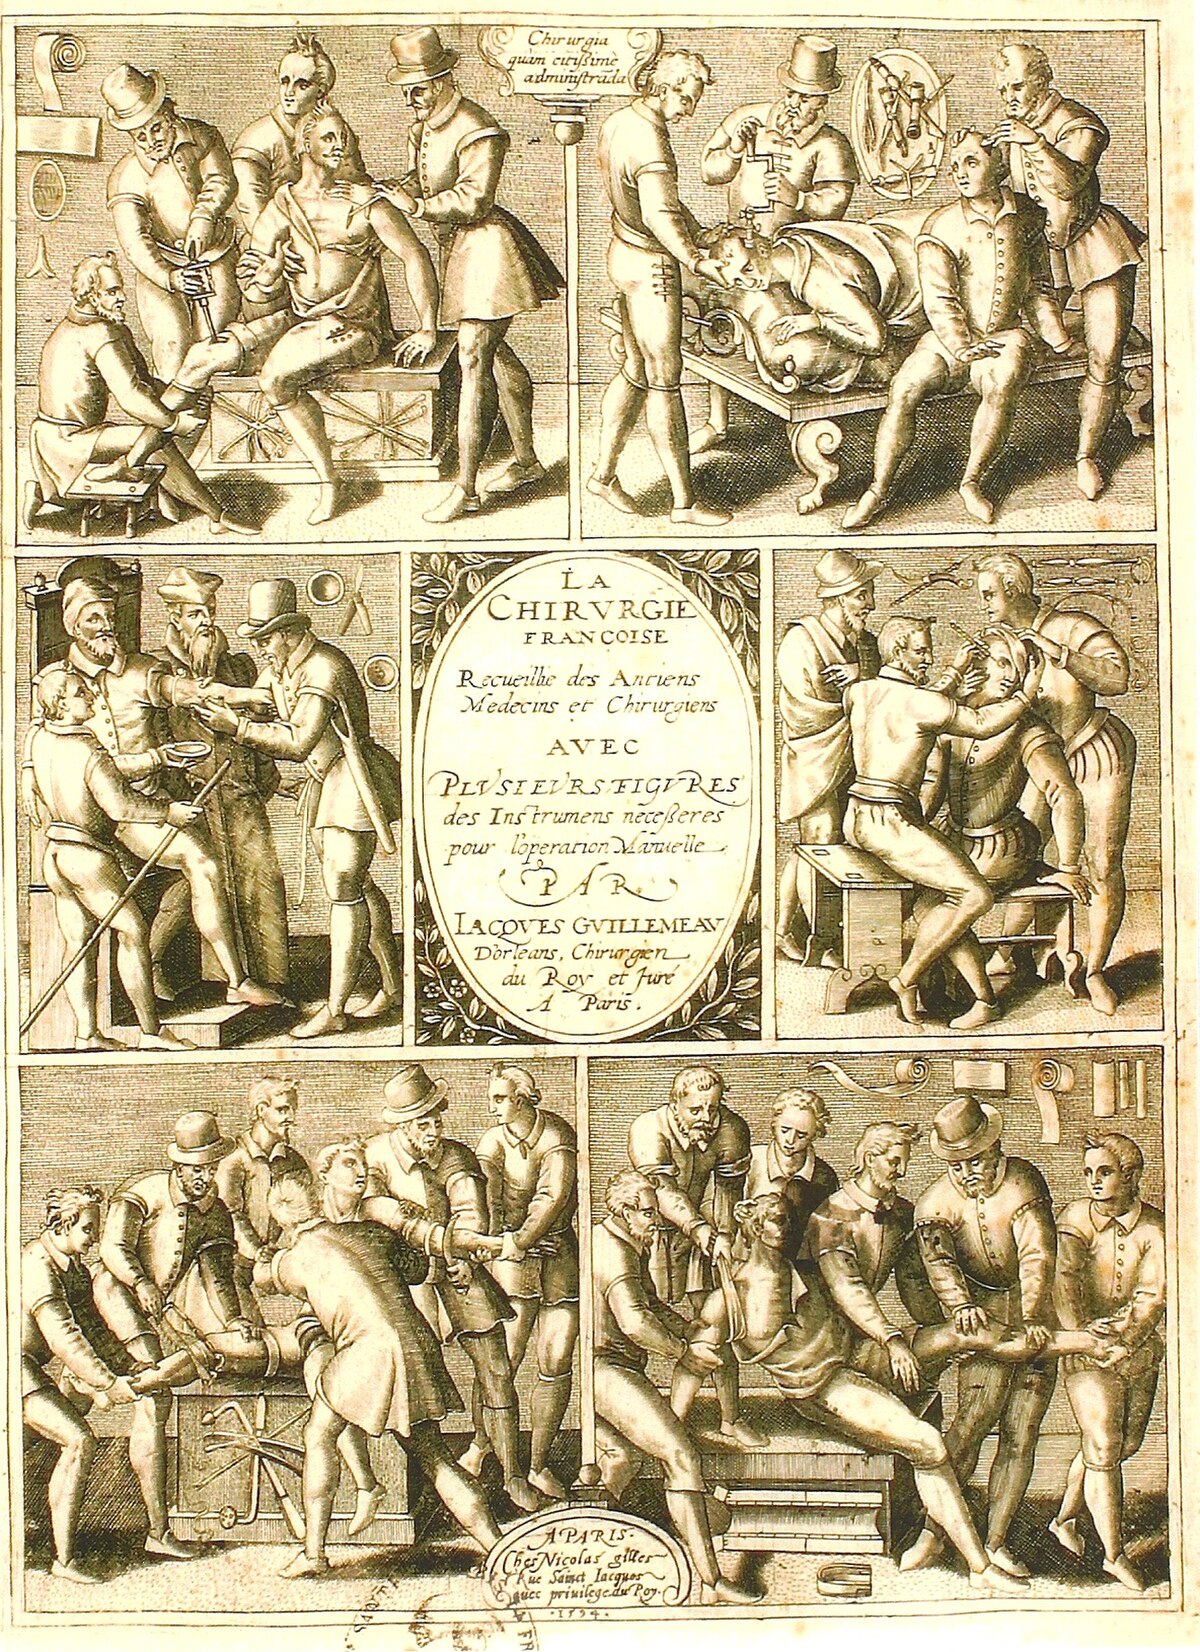 Chirurgia
quam citissime
administrada
LA
CHIRVRGIE
FRANÇOISE
Recueillie des Anciens
Medecins et Chirurgiens
AVEC
PLVSIEVRS FIGVRES
des Instrumens neceßeres
pour l'operation Manuelle
PAR
IACQVES GVILLEMEAV
D'orleans, Chirurgien
du Roy et Juré
A Paris.
A PARIS.
Ches Nicolas gilles
Rue Sainct Iacques
avec privilege du Roy.
·1594·